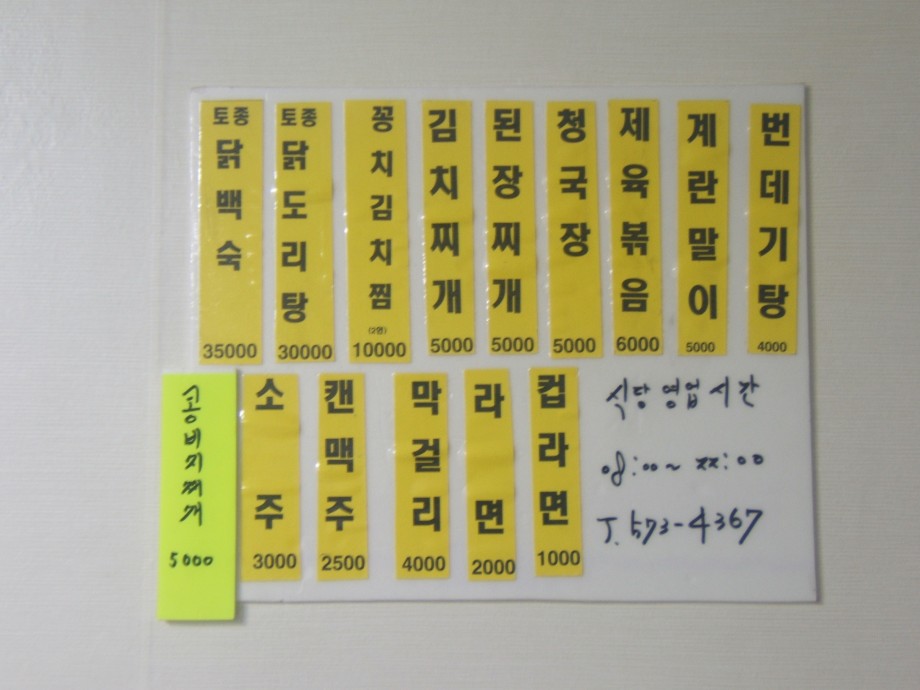 토종 닭백숙 35000
토종 닭도리탕 30000
꽁치김치찜 (2인) 10000
김치찌개 5000
된장찌개 5000
청국장 5000
제육볶음 6000
계란말이 5000
번데기탕 4000
콩비지찌개 5000
소주 3000
캔맥주 2500
막걸리 4000
라면 2000
컵라면 1000
식당 영업시간
08:00~22:00
T. 573-4367